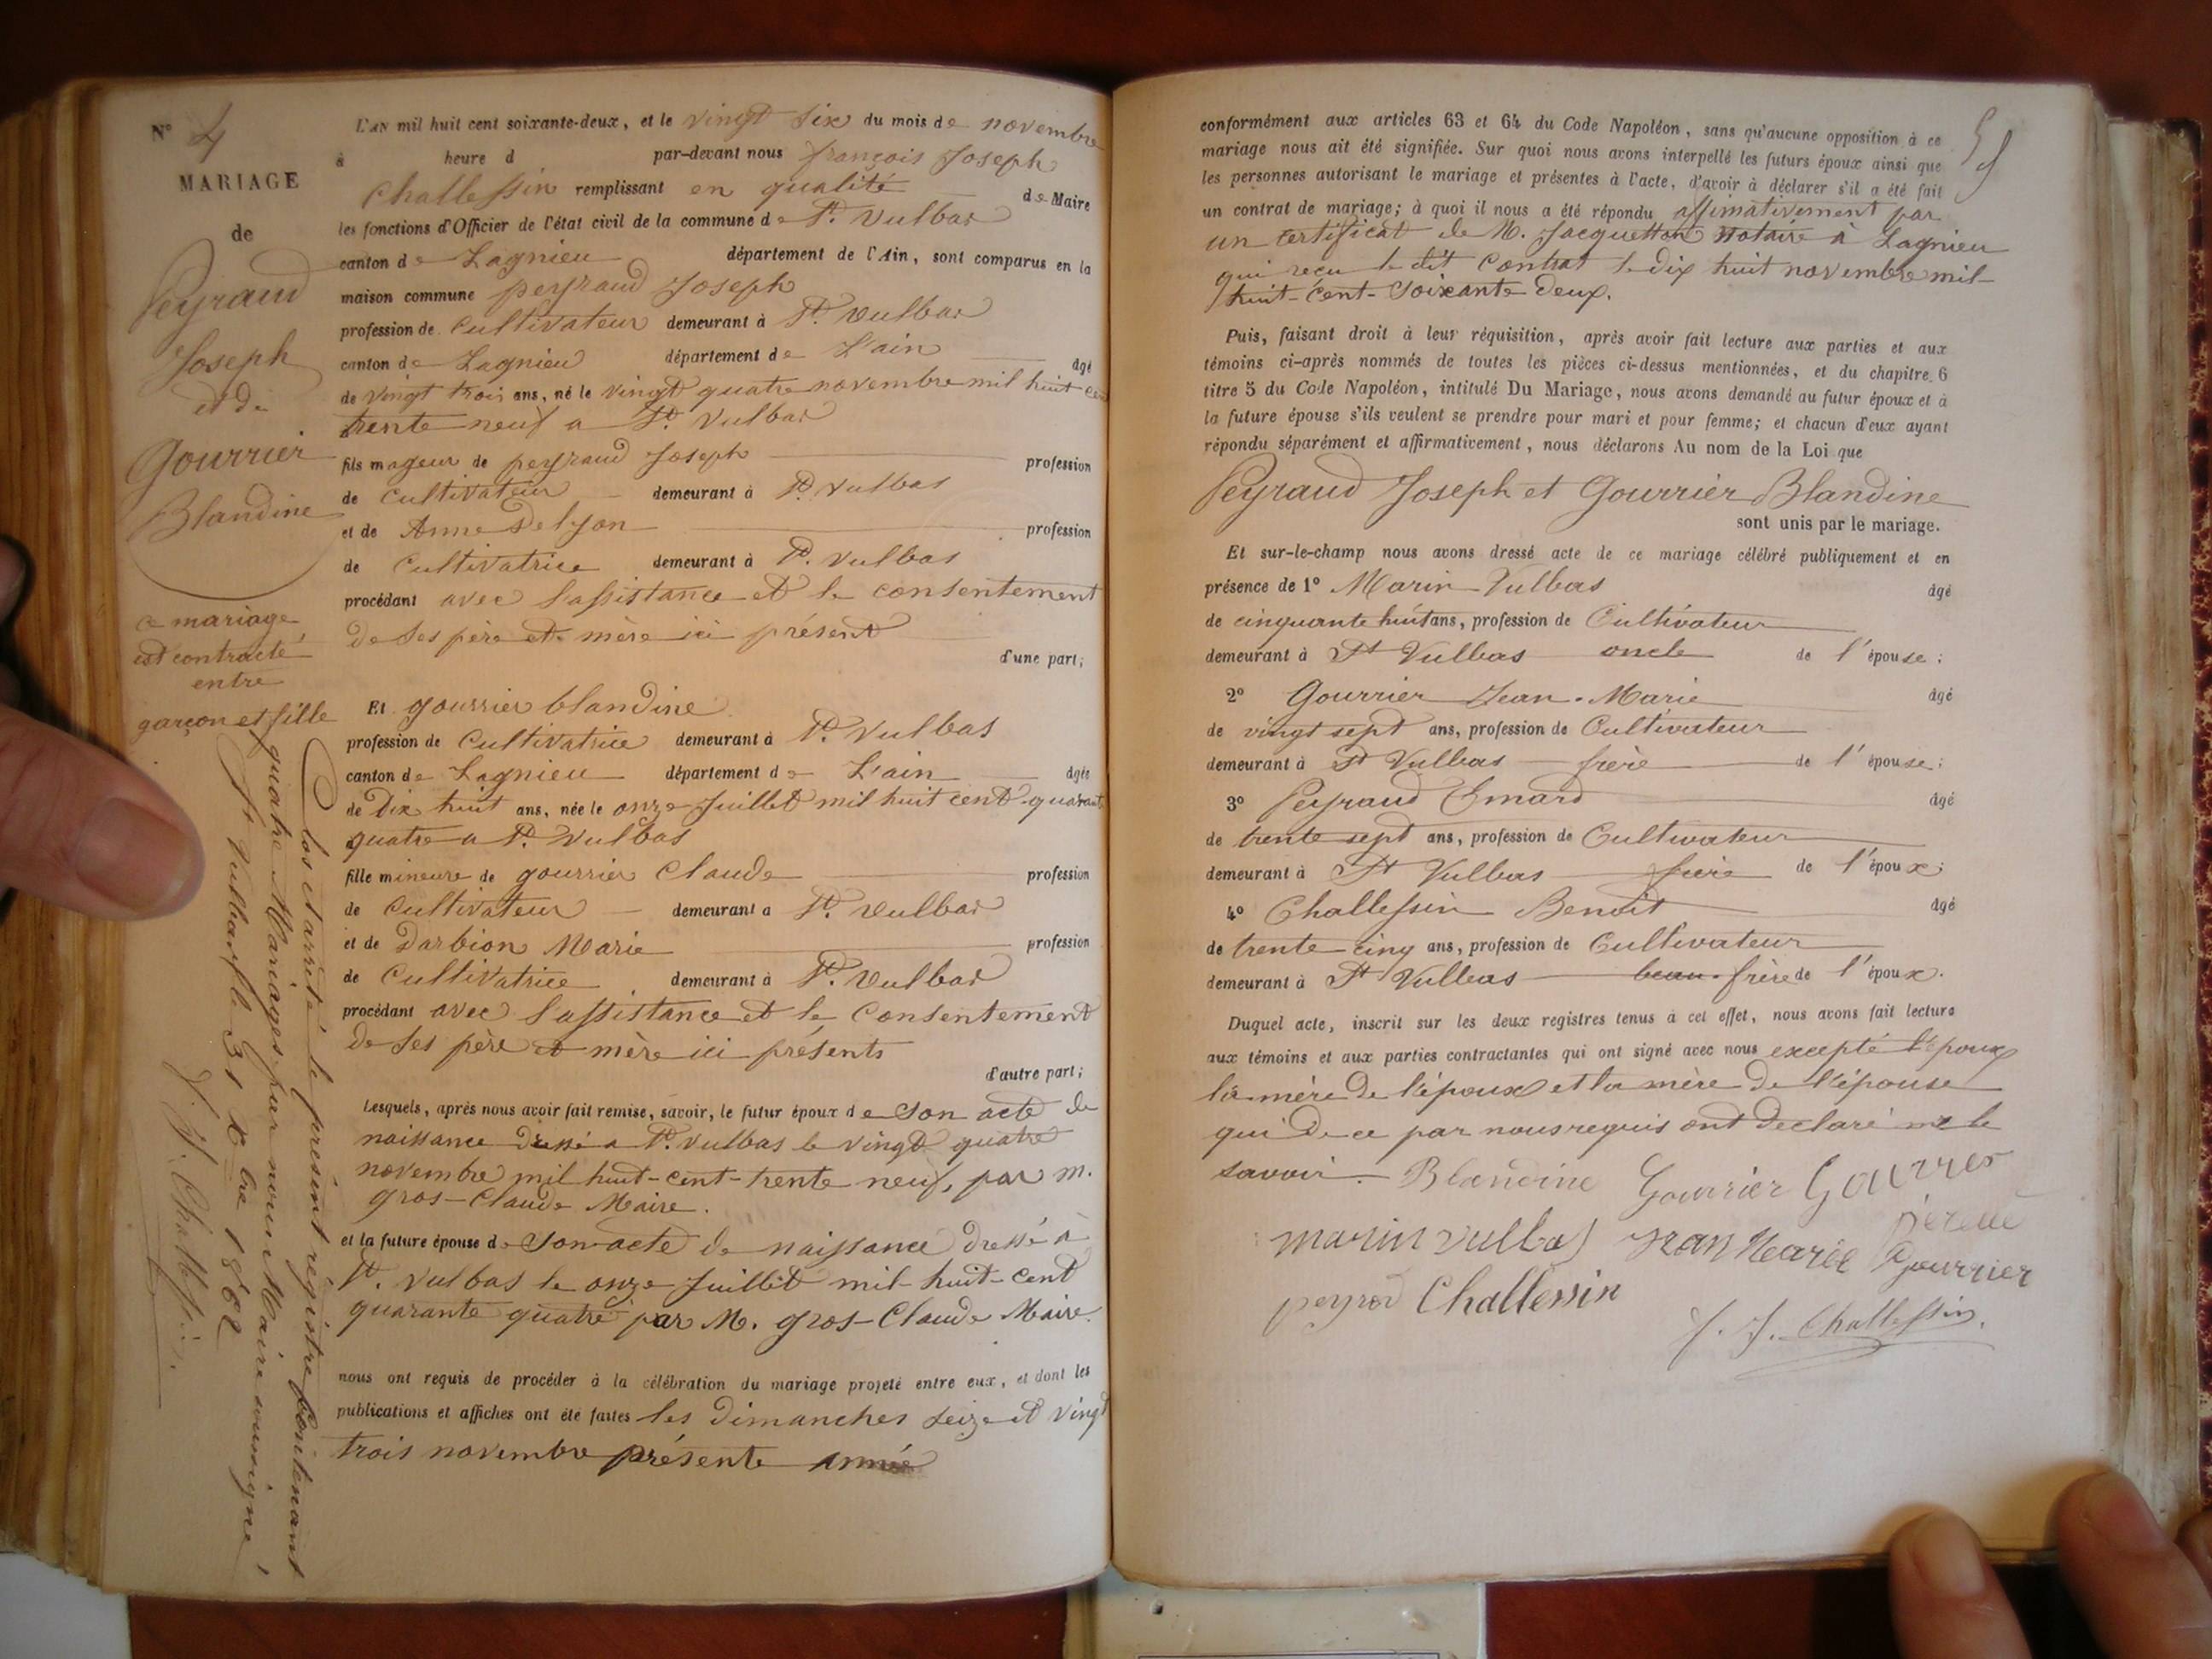 N° 4
MARIAGE
de
Peyraud
Joseph
et de
Gourrier
Blandine
ce mariage
est contracté
entre
garçon et fille
Clos et arrêté le présent régistre contenant
quatre Mariages par nous Maire soussigné
St Vulbas le 31 Xbre 1862
J. J. Challessin.
L'AN mil huit cent soixante-deux, et le vingt six du mois de novembre
à heure d par-devant nous françois Joseph
Challessin remplissant en qualité de Maire
les fonctions d'Officier de l'état civil de la commune de St. Vulbas
canton de Lagnieu département de l'Ain, sont comparus en la
maison commune peyraud Joseph
profession de Cultivateur demeurant à St. Vulbas
canton de Lagnieu département de L'ain âgé
de vingt trois ans, né le vingt quatre novembre mil huit cent
trente neuf a St. Vulbas
fils mageur de peyraud Joseph profession
de Cultivateur demeurant à St. Vulbas
et de Anne Delyon profession
de Cultivatrice demeurant à St. Vulbas
procédant avec l'assistance et le consentement
de ses père et mère ici présent
d'une part;
Et gourrier blandine
profession de Cultivatrice demeurant à St. Vulbas
canton de Lagnieu département de L'ain âgée
de Dix huit ans, née le onze Juillet mil huit cent quarante
quatre a St. Vulbas
fille mineure de gourrier Claude profession
de Cultivateur demeurant a St. Vulbas
et de Darbion Marie profession
de Cultivatrice demeurant à St. Vulbas
procédant avec l'assistance et le Consentement
de ses père et mère ici présents
d'autre part;
Lesquels, après nous avoir fait remise, savoir, le futur époux de son acte de
naissance dressé a St. Vulbas le vingt quatre
novembre mil huit-cent-trente neuf, par m.
gros-Claude Maire.
et la future épouse de son acte de naissance dressé à
St. Vulbas le onze Juillet mil-huit-cent
quarante quatre par M. gros-Claude Maire.
nous ont requis de procéder à la célébration du mariage projeté entre eux, et dont les
publications et affiches ont été faites les dimanches seize et vingt
trois novembre présente année
conformément aux articles 63 et 64 du Code Napoléon, sans qu'aucune opposition à ce
mariage nous ait été signifiée. Sur quoi nous avons interpellé les futurs époux ainsi que
les personnes autorisant le mariage et présentes à l'acte, d'avoir à déclarer s'il a été fait
un contrat de mariage; à quoi il nous a été répondu affimativement par
un certificat de M. Jacquetton notaire à Lagnieu
qui reçu le dit Contrat le dix huit novembre mil-
huit-cent-soixante deux.
Puis, faisant droit à leur réquisition, après avoir fait lecture aux parties et aux
témoins ci-après nommés de toutes les pièces ci-dessus mentionnées, et du chapitre 6
titre 5 du Code Napoléon, intitulé Du Mariage, nous avons demandé au futur époux et à
la future épouse s'ils veulent se prendre pour mari et pour femme; et chacun d'eux ayant
répondu séparément et affirmativement, nous déclarons Au nom de la Loi que
Peyraud Joseph et Gourrier Blandine
sont unis par le mariage.
Et sur-le-champ nous avons dressé acte de ce mariage célébré publiquement et en
présence de 1° Marin Vulbas âgé
de cinquante huit ans, profession de Cultivateur
demeurant à St Vulbas oncle de l'épouse;
2° Gourrier Jean-Marie âgé
de vingt sept ans, profession de Cultivateur
demeurant à St Vulbas frère de l'épouse;
3° Peyraud Emard âgé
de trente sept ans, profession de Cultivateur
demeurant à St Vulbas frère de l'époux;
4° Challessin Benoit âgé
de trente-cinq ans, profession de Cultivateur
demeurant à St Vulbas beau-frère de l'époux.
Duquel acte, inscrit sur les deux registres tenus à cet effet, nous avons fait lecture
aux témoins et aux parties contractantes qui ont signé avec nous excepté l'époux
la mère de l'époux et la mère de l'épouse
qui de ce par nous requis ont declaré ne le
savoir. Blandine Gourrier Gourrier
père
marin vulbas Jean Marie Gourrier
peyrod Challessin
J. J. Challessin.